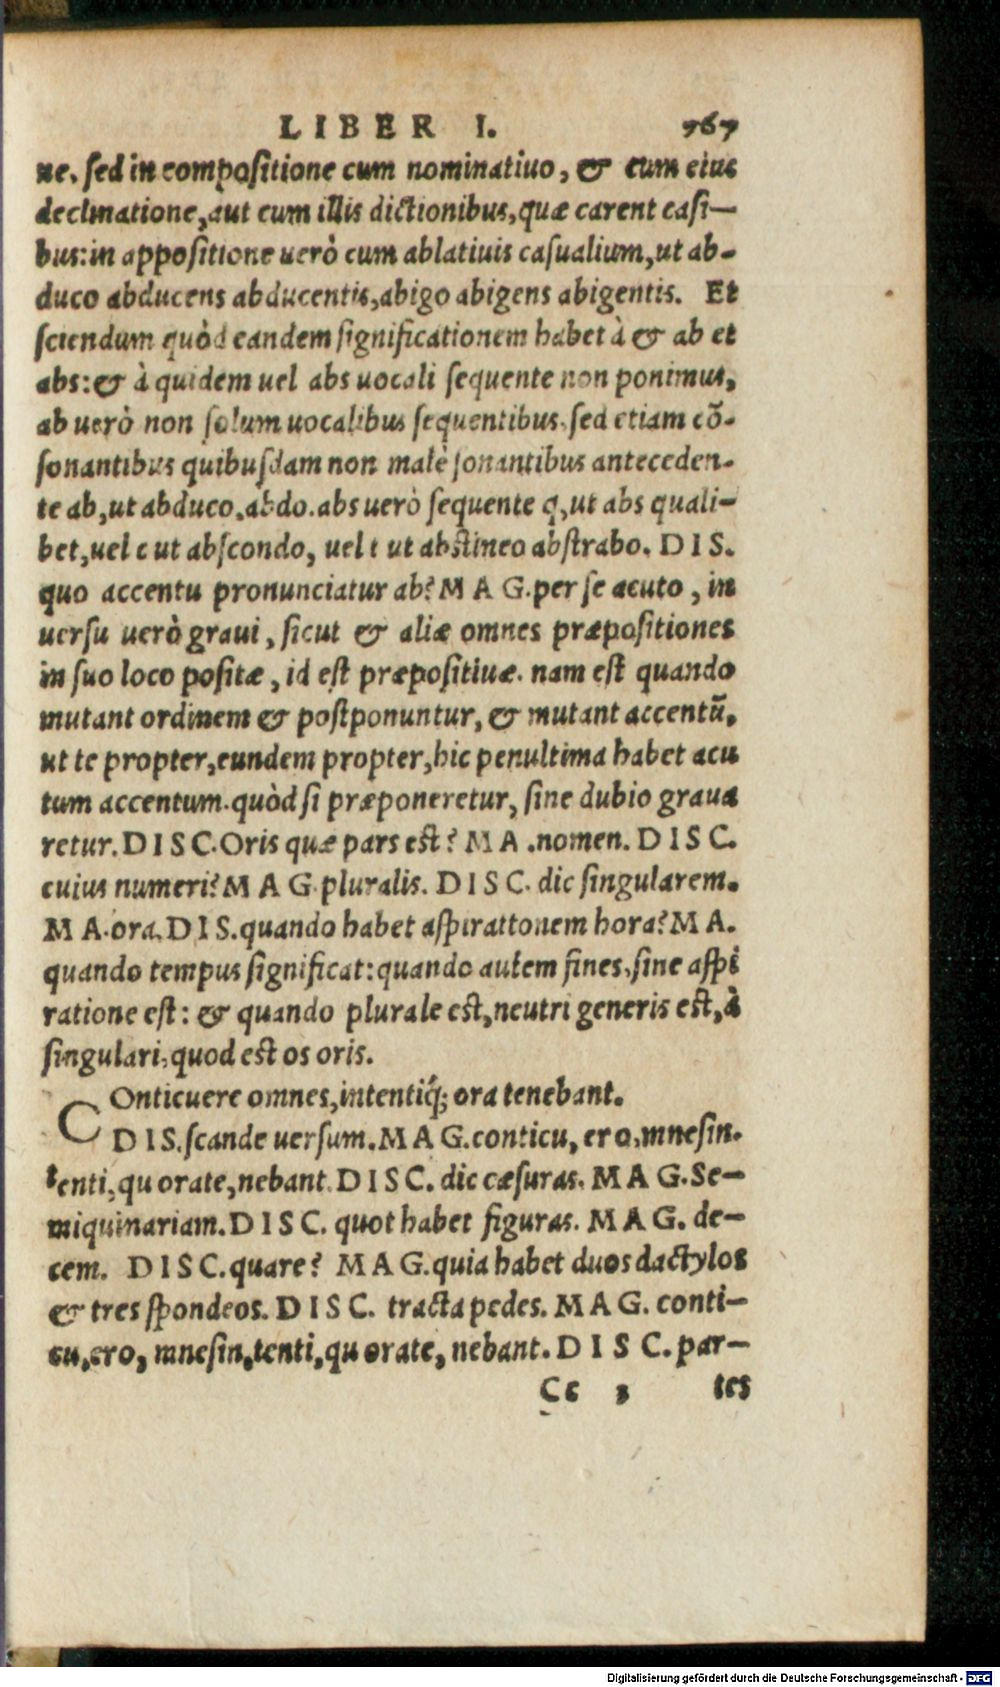 LIBER I. 767
ne. sed in compositione cum nominatiuo, & cum eius
declinatione, aut cum illis dictionibus, quæ carent casi-
bus: in appositione uerò cum ablatiuis casualium, ut ab-
duco abducens abducentis, abigo abigens abigentis. Et
sciendum quòd eandem significationem habet à & ab et
abs: & à quidem uel abs uocali sequente non ponimus,
ab uerò non solum uocalibus sequentibus, sed etiam cō-
sonantibus quibusdam non malè sonantibus anteceden-
te ab, ut abduco, abdo. abs uerò sequente q, ut abs quali-
bet, uel c ut abscondo, uel t ut abstineo abstrabo. DIS.
quo accentu pronunciatur ab? MAG. per se acuto, in
uersu uerò graui, sicut & aliæ omnes præpositiones
in suo loco positæ, id est præpositiuæ. nam est quando
mutant ordinem & postponuntur, & mutant accentū,
ut te propter, eundem propter, hic penultima habet acu
tum accentum. quòd si præponeretur, sine dubio graua
retur. DISC. Oris quæ pars est? MA. nomen. DISC.
cuius numeri? MAG. pluralis. DISC. dic singularem.
MA. ora. DIS. quando habet aspirattonem hora? MA.
quando tempus significat: quando autem fines, sine aspi
ratione est: & quando plurale est, neutri generis est, à
singulari, quod est os oris.
COnticuere omnes, intentiq́; ora tenebant.
DIS. scande uersum. MAG. conticu, ero, mnesin.
tenti, qu orate, nebant. DISC. dic cæsuras. MAG. Se-
miquinariam. DISC. quot habet figuras. MAG. de-
cem. DISC. quare? MAG. quia habet duos dactylos
& tres spondeos. DISC. tracta pedes. MAG. conti-
cu, ero, mnesin, tenti, qu orate, nebant. DISC. par-
Cc 3 tes
Digitalisierung gefördert durch die Deutsche Forschungsgemeinschaft - DFG